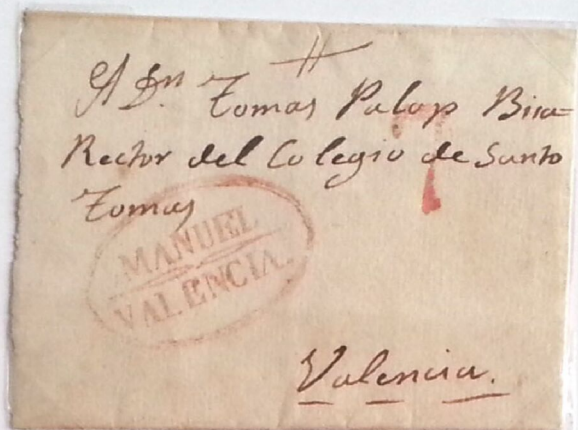 A Dn. Tomas Palop Bice-
Rector del Colegio de Santo
Tomas
MANUEL
VALENCIA.
Valencia.